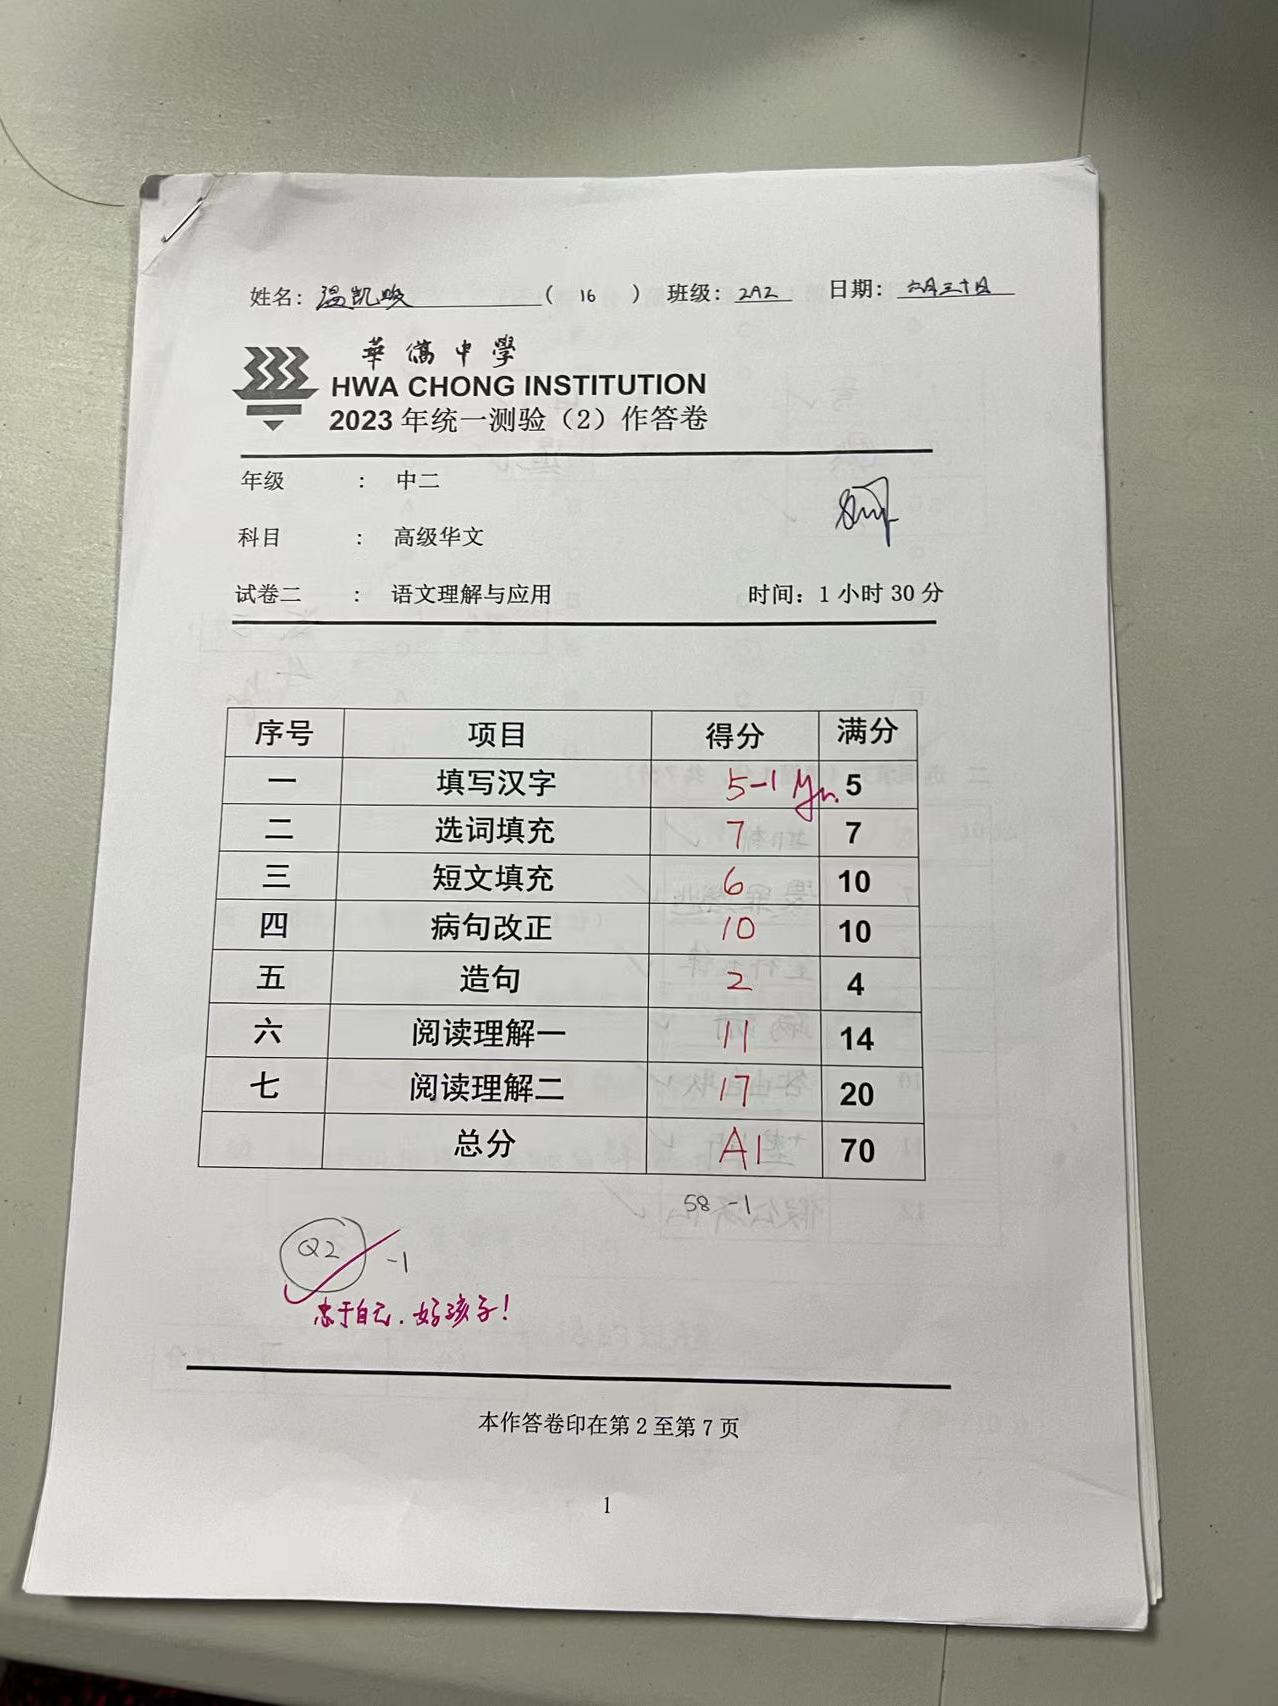 姓名：温凯峻 （ 16 ） 班级：2A2 日期：六月三十日
華僑中學
HWA CHONG INSTITUTION
2023 年统一测验（2）作答卷
年级 ： 中二
科目 ： 高级华文
试卷二 ： 语文理解与应用 时间：1 小时 30 分
序号 项目 得分 满分
一 填写汉字 5-1 5
二 选词填充 7 7
三 短文填充 6 10
四 病句改正 10 10
五 造句 2 4
六 阅读理解一 11 14
七 阅读理解二 17 20
总分 A1 70
58 -1
Q2 -1
忠于自己．好孩子！
本作答卷印在第 2 至第 7 页
1